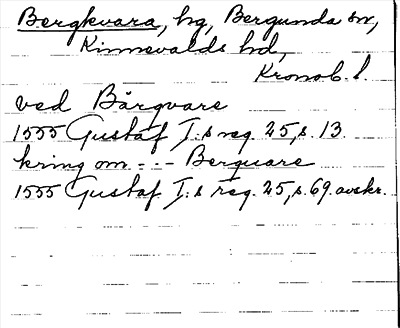 Bergkvara, hg, Bergunda sn,
Kinnevalds hd,
Kronob. l.
ved Bårgvare
1555 Gustaf I:s reg. 25, s. 13.
kring om - - - Berguare
1555 Gustaf I:s reg. 25, s. 69. avskr.